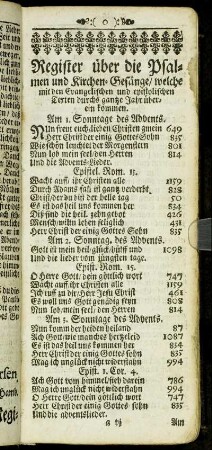 Register über die Psal-
men und Kirchen-Gesänge/ welche
mit den Evangelischen und epistolischen
Texten durchs gantze Jahr über-
ein kommen.
Am 1. Sonntage des Advents.
NUn freut euch lieben Christen gmein 649
HErr Christ der einig Gottes Sohn 835
Wie schön leuchtet der Morgenstern 801
Nun lob mein seel den HErren 814
Und die Advents-Lieder.
Epistel. Rom. 13.
Wacht auff, ihr Christen alle 1159
Durch Adams fall ist gantz verderbt 828
Christ der du bist der helle tag 50
Es ist das heil uns kommen her 834
Diß sind die heil. zehn gebot 626
Mensch wiltu leben seliglich 431
Herr Christ der einig Gottes Sohn 835
Am 2. Sonntage des Advents.
Gott ist mein heil glück/hülff und 1098
Und die lieder vom jüngsten tage.
Epist. Rom. 15.
O Herre Gott/ dein göttlich wort 747
Wacht auff ihr Christen alle 1159
Ich ruf zu dir/Herr Jesu Christ 461
Es woll uns Gott genädig seyn 808
Nun lob mein seel den HErren 814
Am 3. Sonntage des Advents.
Nun komm der heiden heiland 87
Ach Gott/wie manches hertzleid 1087
Es ist das heil uns kommen her 834
Herr Christ der einig Gottes sohn 835
Mag ich unglück nicht widerstahn 994
Epist. 1. Cor. 4.
Ach Gott vom himmel/sieh darein 786
Mag ich unglück nicht widerstahn 994
O Herre Gott/dein göttlich wort 747
Herr Christ der einig Gottes sohn 835
Und die adventslieder.
Am